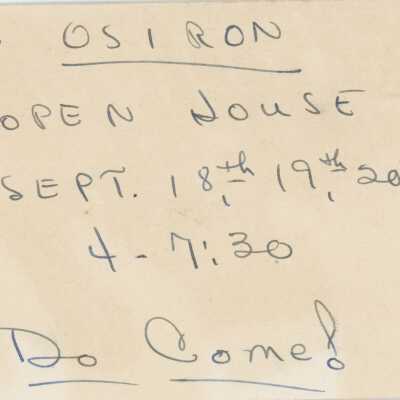 OSIRON
OPEN HOUSE
SEPT. 18th, 19th, 20
4 - 7:30
Do Come!